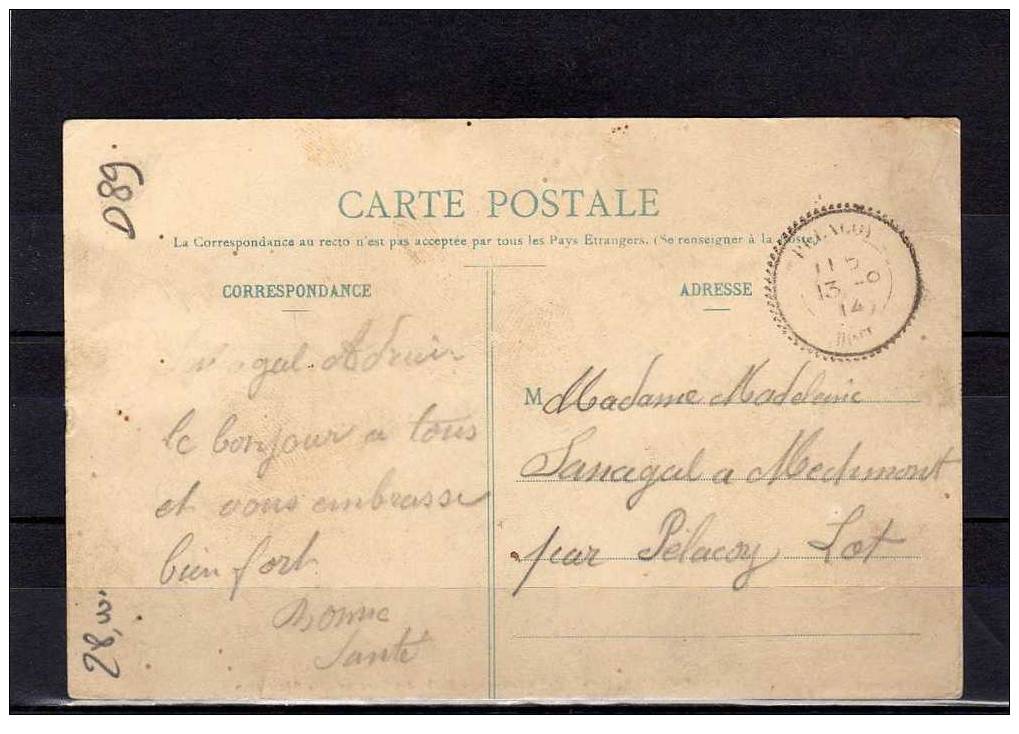 D89
CARTE POSTALE
La Correspondance au recto n'est pas acceptée par tous les Pays Etrangers. (Se renseigner à la Poste)
CORRESPONDANCE
ADRESSE
PELACOY
13
14
LOT
le bonjour a tous
et vous embrasse
bien fort
Bonne
Santé
M Madame Madeleine
Sanagal a Mechmont
par Pélacoy Lot
28,00